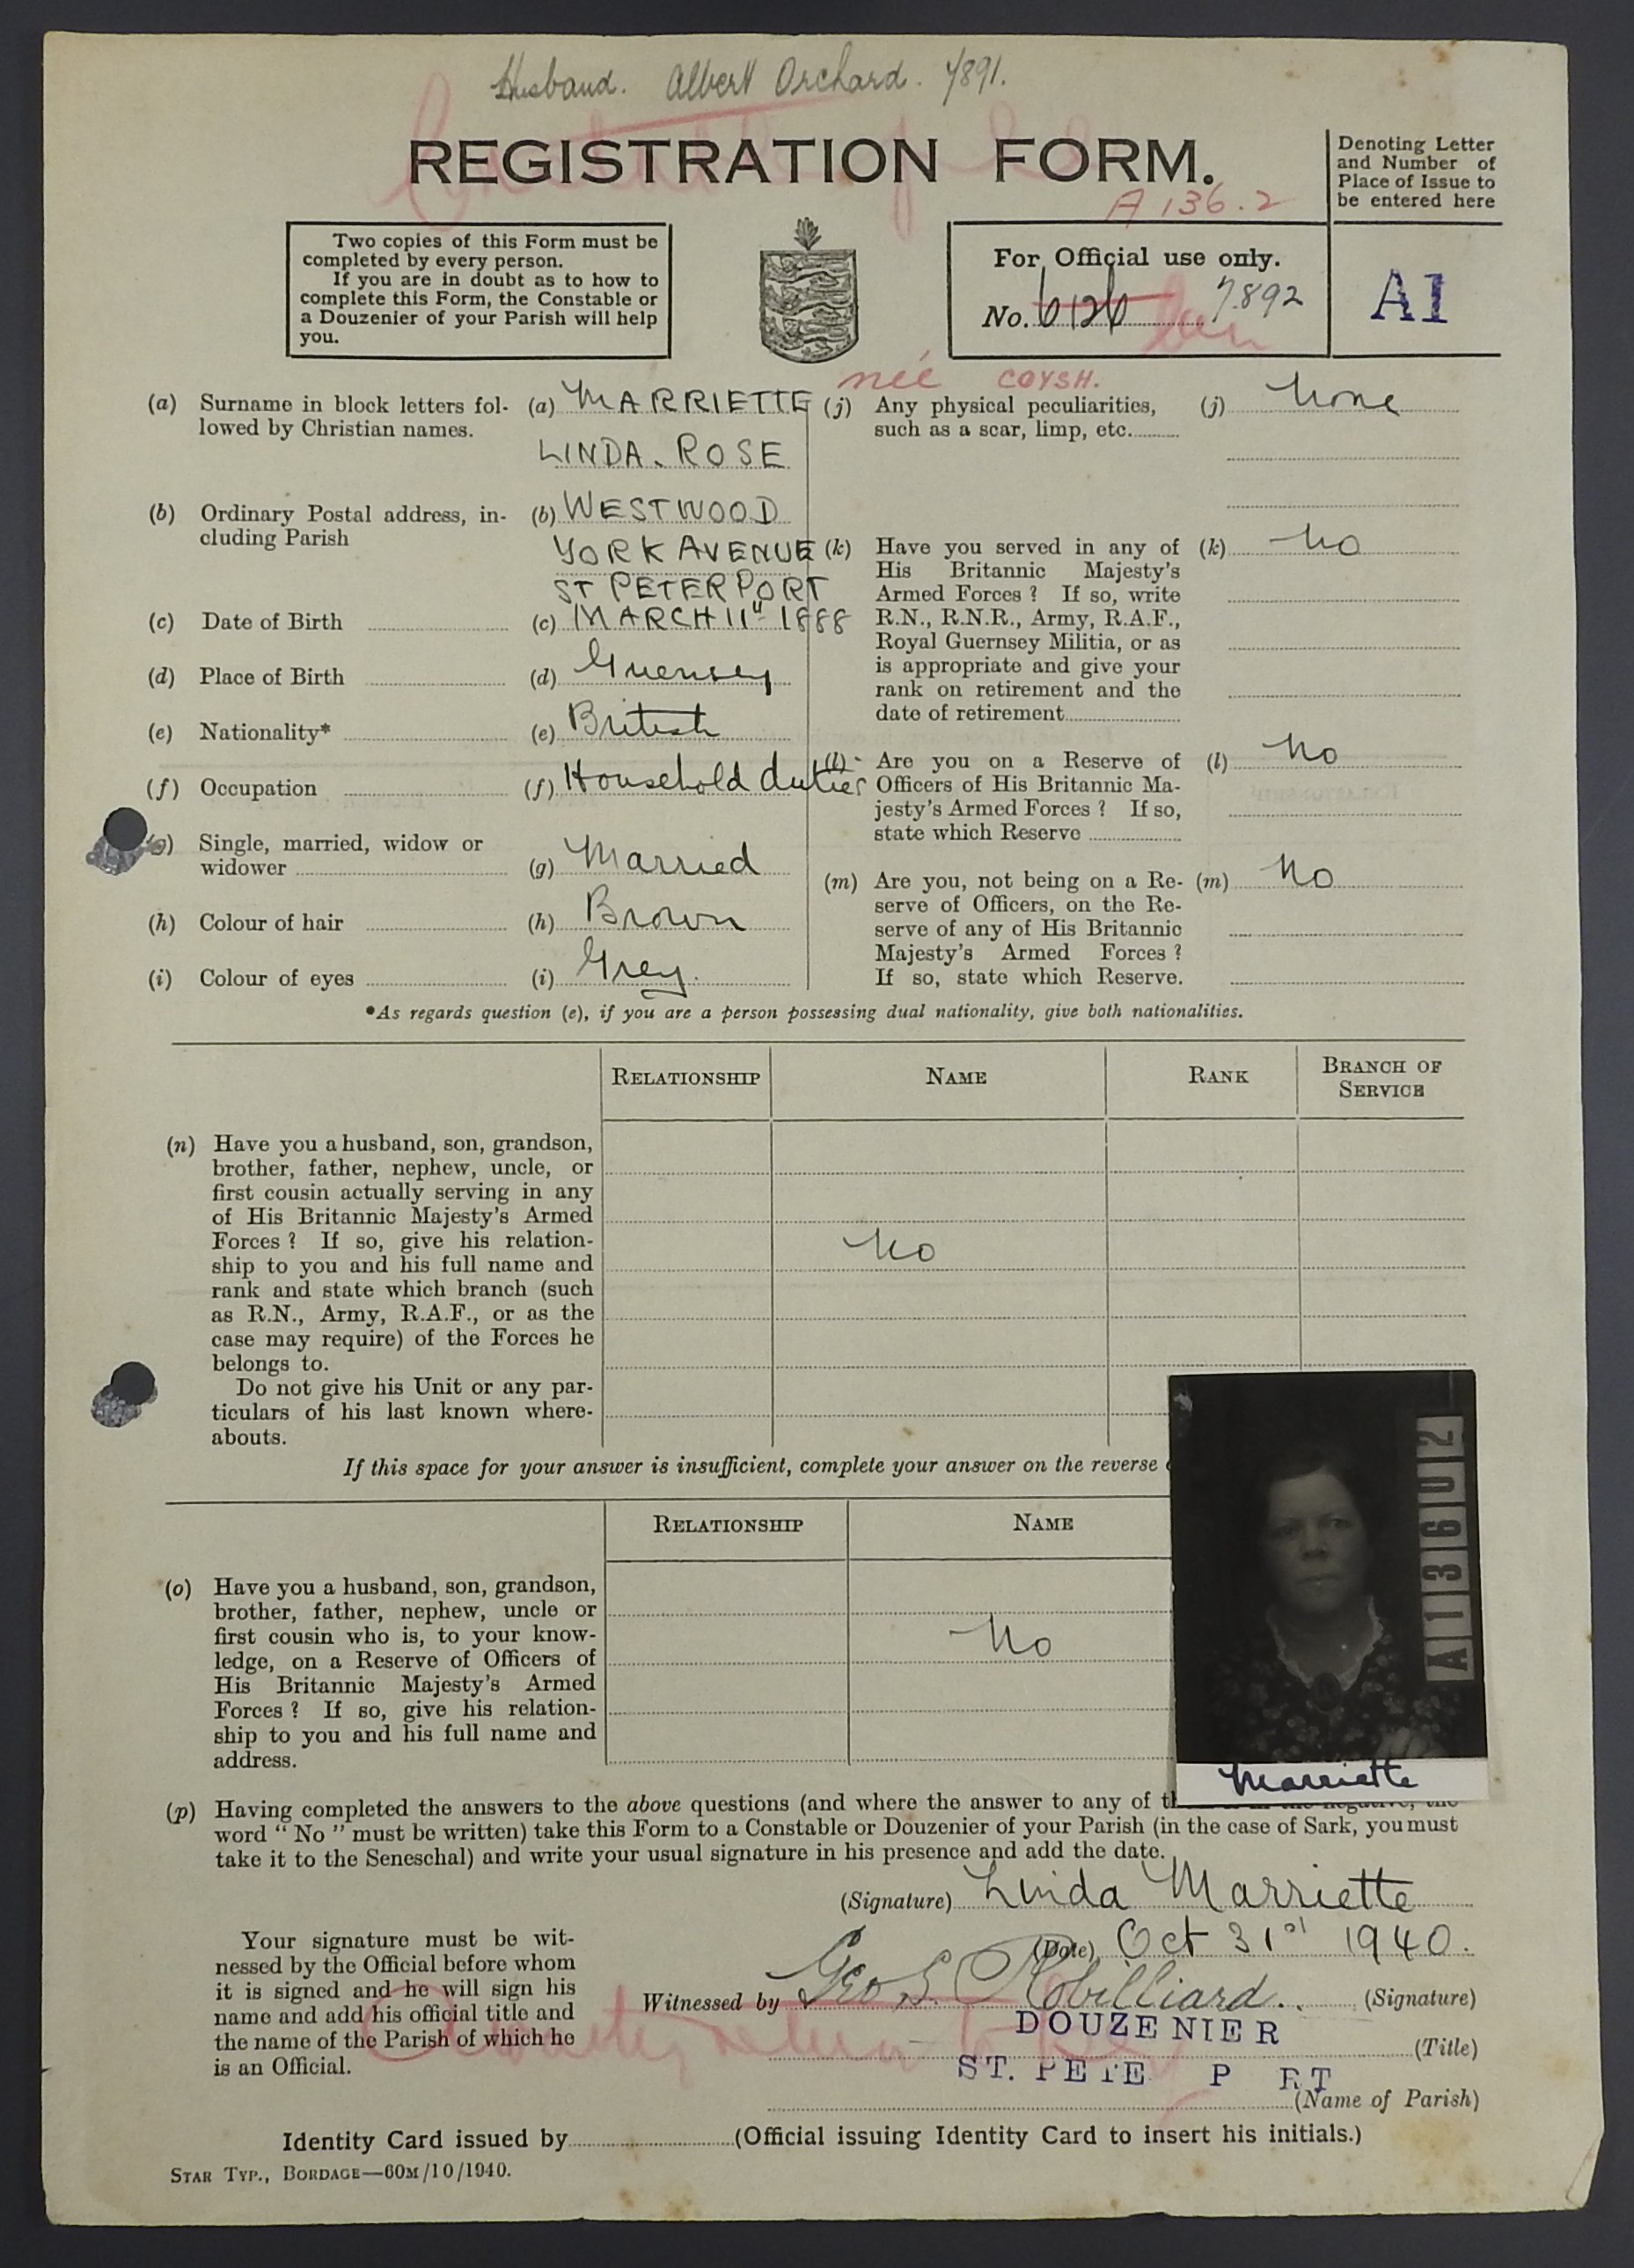 Husband. Albert Orchard. 7891.
REGISTRATION FORM.
A 136.2
Denoting Letter
and Number of
Place of Issue to
be entered here
Two copies of this Form must be
completed by every person.
If you are in doubt as to how to
complete this Form, the Constable or
a Douzenier of your Parish will help
you.
For Official use only.
No. 6126 7892
A1
née COYSH.
(a) Surname in block letters fol- (a) MARRIETTE
lowed by Christian names.
LINDA. ROSE
(b) Ordinary Postal address, in- (b) WESTWOOD
cluding Parish
YORK AVENUE
ST PETER PORT
(c) Date of Birth (c) MARCH 11th 1888
(d) Place of Birth (d) Guernsey
(e) Nationality* (e) British
(f) Occupation (f) Household duties
(g) Single, married, widow or
widower (g) Married
(h) Colour of hair (h) Brown
(i) Colour of eyes (i) Grey.
(j) Any physical peculiarities, (j) None
such as a scar, limp, etc.
(k) Have you served in any of (k) No
His Britannic Majesty's
Armed Forces? If so, write
R.N., R.N.R., Army, R.A.F.,
Royal Guernsey Militia, or as
is appropriate and give your
rank on retirement and the
date of retirement
(l) Are you on a Reserve of (l) No
Officers of His Britannic Ma-
jesty's Armed Forces? If so,
state which Reserve
(m) Are you, not being on a Re- (m) No
serve of Officers, on the Re-
serve of any of His Britannic
Majesty's Armed Forces?
If so, state which Reserve.
*As regards question (e), if you are a person possessing dual nationality, give both nationalities.
RELATIONSHIP NAME RANK BRANCH OF
SERVICE
(n) Have you a husband, son, grandson,
brother, father, nephew, uncle, or
first cousin actually serving in any
of His Britannic Majesty's Armed
Forces? If so, give his relation-
ship to you and his full name and
rank and state which branch (such
as R.N., Army, R.A.F., or as the
case may require) of the Forces he
belongs to.
Do not give his Unit or any par-
ticulars of his last known where-
abouts.
No
If this space for your answer is insufficient, complete your answer on the reverse
RELATIONSHIP NAME
(o) Have you a husband, son, grandson,
brother, father, nephew, uncle or
first cousin who is, to your know-
ledge, on a Reserve of Officers of
His Britannic Majesty's Armed
Forces? If so, give his relation-
ship to you and his full name and
address.
No
A136U2
Marriette
(p) Having completed the answers to the above questions (and where the answer to any of
word "No" must be written) take this Form to a Constable or Douzenier of your Parish (in the case of Sark, you must
take it to the Seneschal) and write your usual signature in his presence and add the date.
(Signature) Linda Marriette
(Date) Oct 31st 1940.
Your signature must be wit-
nessed by the Official before whom
it is signed and he will sign his
name and add his official title and
the name of the Parish of which he
is an Official.
Witnessed by Geo S. Robilliard. (Signature)
DOUZENIER
(Title)
ST. PETE P RT
(Name of Parish)
Identity Card issued by (Official issuing Identity Card to insert his initials.)
STAR TYP., BORDAGE—60M/10/1940.